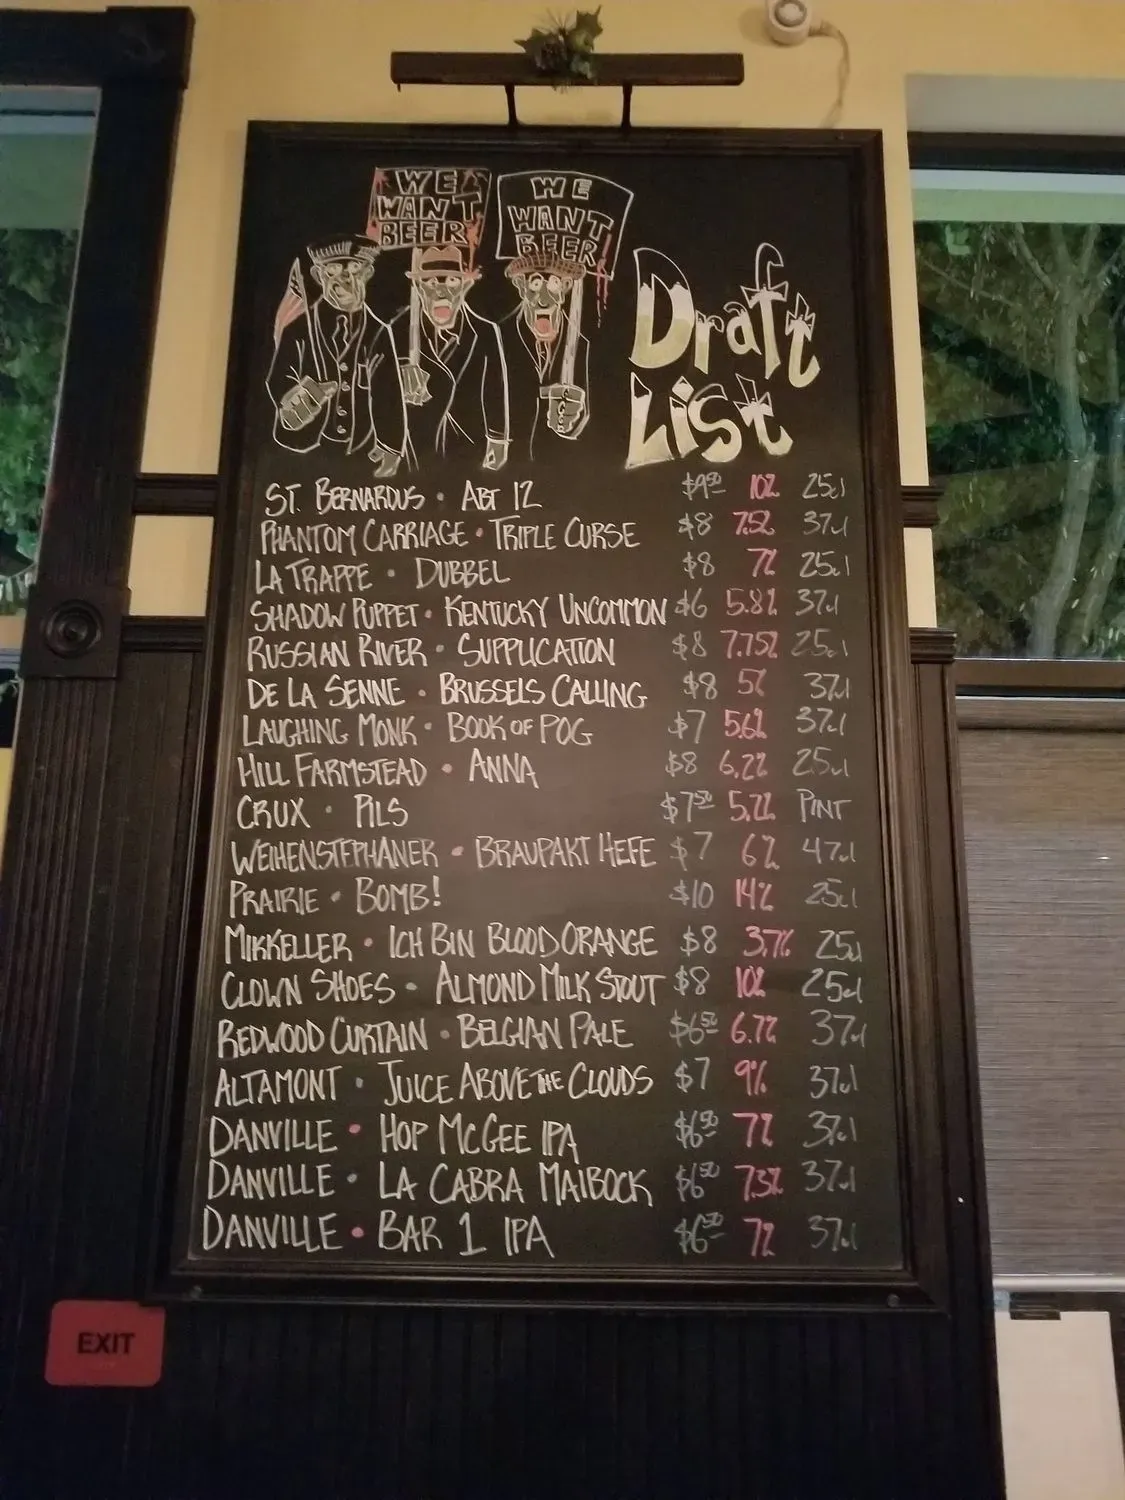 WE WANT BEER
WE WANT BEER
Draft
List
ST. BERNARDUS · ABT 12 $9.50 10% 25cl
PHANTOM CARRIAGE · TRIPLE CURSE $8 7.5% 37cl
LA TRAPPE · DUBBEL $8 7% 25cl
SHADOW PUPPET · KENTUCKY UNCOMMON $6 5.8% 37cl
RUSSIAN RIVER · SUPPLICATION $8 7.75% 25cl
DE LA SENNE · BRUSSELS CALLING $8 5% 37cl
LAUGHING MONK · BOOK OF POG $7 5.6% 37cl
HILL FARMSTEAD · ANNA $8 6.2% 25cl
CRUX · PILS $7.50 5.2% PINT
WEIHENSTEPHANER · BRAUPAKT HEFE $7 6% 47cl
PRAIRIE · BOMB! $10 14% 25cl
MIKKELLER · ICH BIN BLOOD ORANGE $8 3.7% 25cl
CLOWN SHOES · ALMOND MILK STOUT $8 10% 25cl
REDWOOD CURTAIN · BELGIAN PALE $6.50 6.7% 37cl
ALTAMONT · JUICE ABOVE THE CLOUDS $7 9% 37cl
DANVILLE · HOP MCGEE IPA $6.50 7% 37cl
DANVILLE · LA CABRA MAIBOCK $6.50 7.3% 37cl
DANVILLE · BAR 1 IPA $6.50 7% 37cl
EXIT